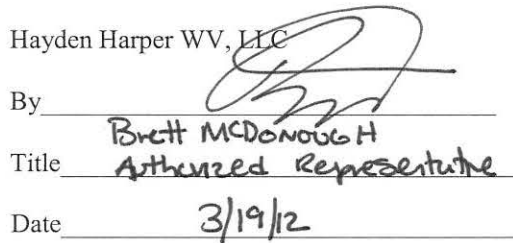 Hayden Harper WV, LLC
By
Brett McDonough
Title Authorized Representative
Date 3/19/12